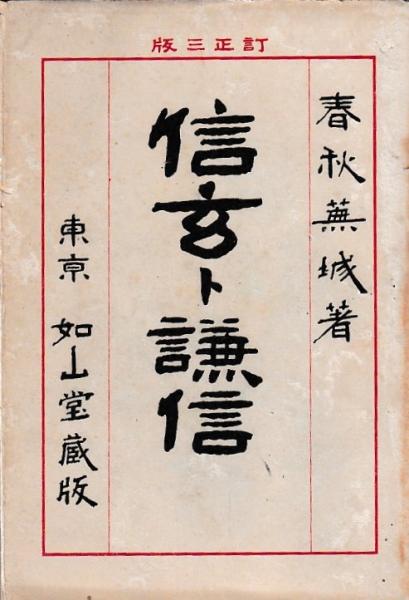 訂正三版
春秋蕪城著
信玄ト謙信
東京 如山堂蔵版